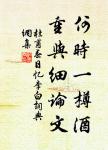 何時一樽酒
重與細論文
杜甫春日憶李白詞典
網集